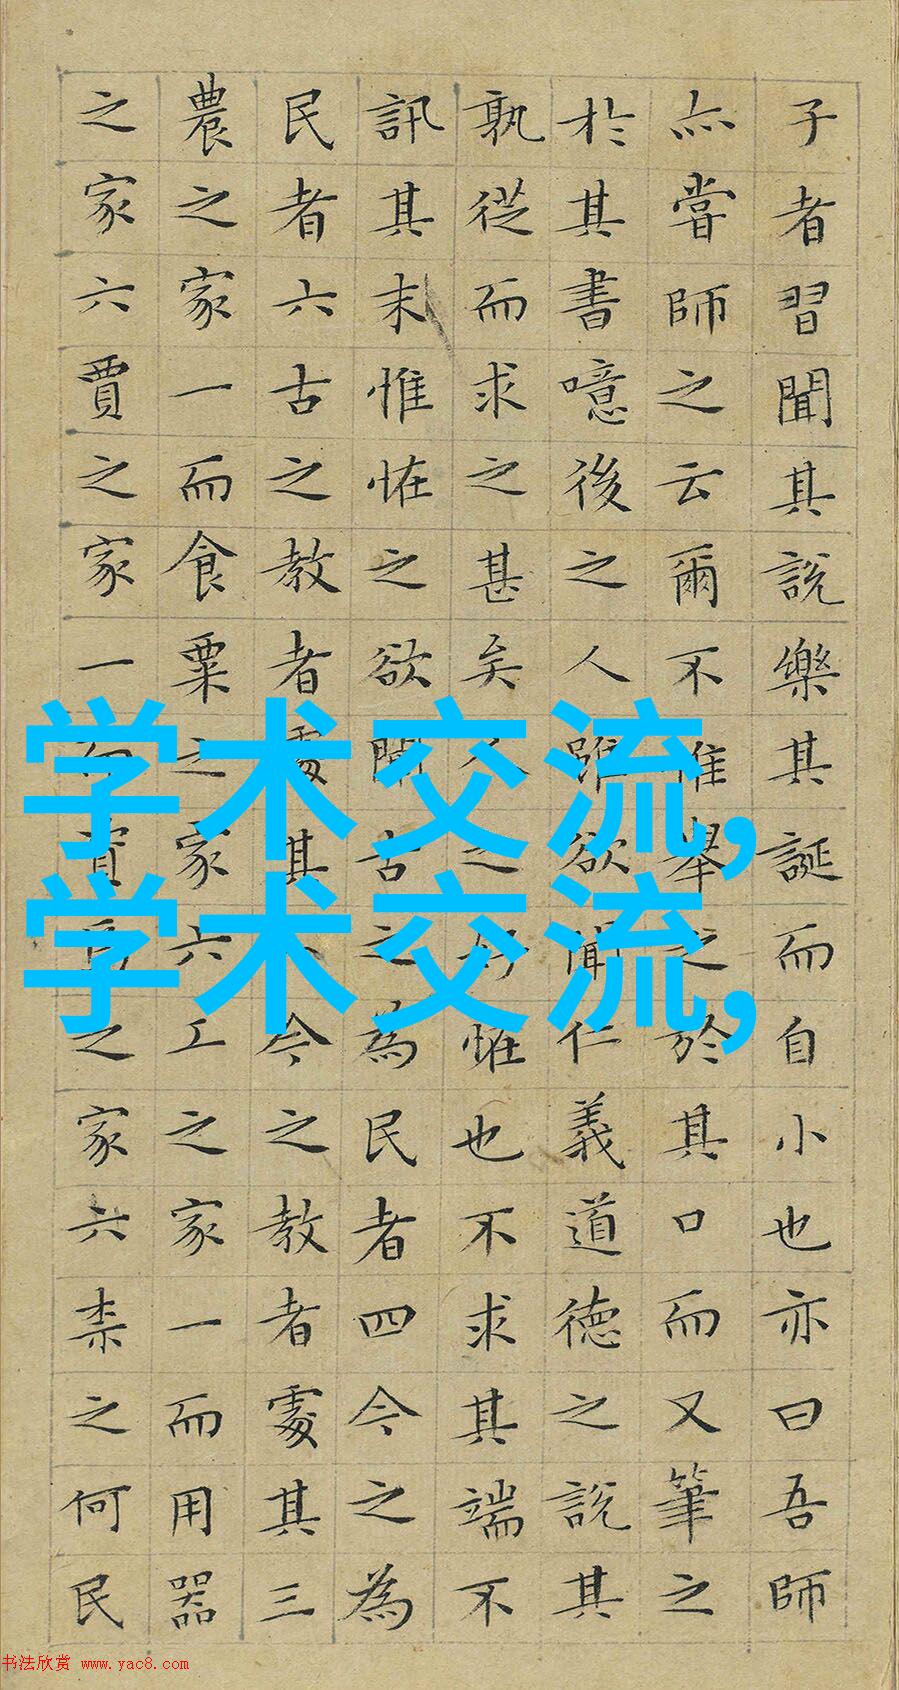 子者習聞其說樂其誕而自小也亦曰吾師
亦嘗師之云爾不惟舉之於其口而又筆之
於其書噫後之人雖欲聞仁義道德之說其
孰從而求之甚矣人之好恠也不求其端不
訊其末惟恠之欲聞古之為民者四今之為
民者六古之教者處其一今之教者處其三
農之家一而食粟之家六工之家一而用器
之家六賈之家一而資焉之家六柰之何民
学术交流,
学术交流,
书法欣赏 www.yac8.com